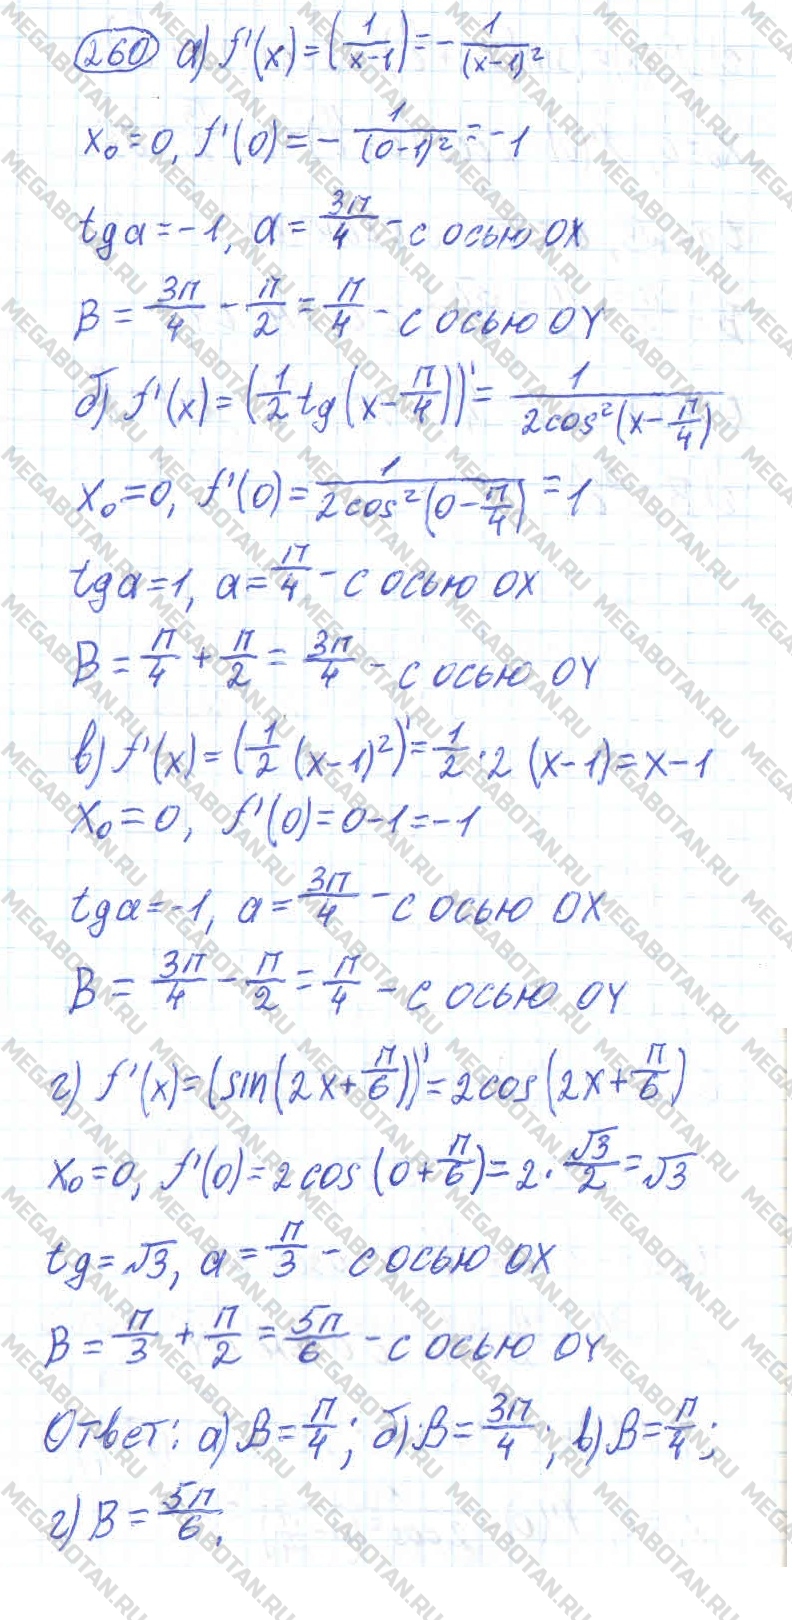 260 а) f'(x) = (1/(x-1)) = - 1/(x-1)²
x₀ = 0, f'(0) = - 1/(0-1)² = -1
tg a = -1, a = 3π/4 - с осью OX
B = 3π/4 - π/2 = π/4 - с осью OY
б) f'(x) = (1/2 tg(x - π/4))' = 1/(2cos²(x - π/4))
x₀ = 0, f'(0) = 1/(2cos²(0 - π/4)) = 1
tg a = 1, a = π/4 - с осью OX
B = π/4 + π/2 = 3π/4 - с осью OY
в) f'(x) = (1/2 (x-1)²)' = 1/2 · 2 (x-1) = x-1
x₀ = 0, f'(0) = 0-1 = -1
tg a = -1, a = 3π/4 - с осью OX
B = 3π/4 - π/2 = π/4 - с осью OY
г) f'(x) = (sin(2x + π/6))' = 2cos(2x + π/6)
x₀ = 0, f'(0) = 2cos(0 + π/6) = 2 · √3/2 = √3
tg = √3, a = π/3 - с осью OX
B = π/3 + π/2 = 5π/6 - с осью OY
Ответ: а) B = π/4; б) B = 3π/4; в) B = π/4;
г) B = 5π/6.
MEGABOTAN.RU